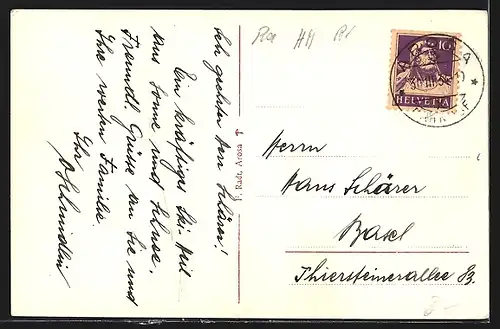 Sehr geehrter Herr Schärer!
Ein kräftiges Ski-Heil
aus Sonne und Schnee.
Freundl. Grüsse an Sie und
Ihre werten Familie.
Ihr
F. Radt, Arosa
Ra HH Rl
10
HELVETIA
Herrn
Hans Schärer
Basel
Thiersteinerallee 82.